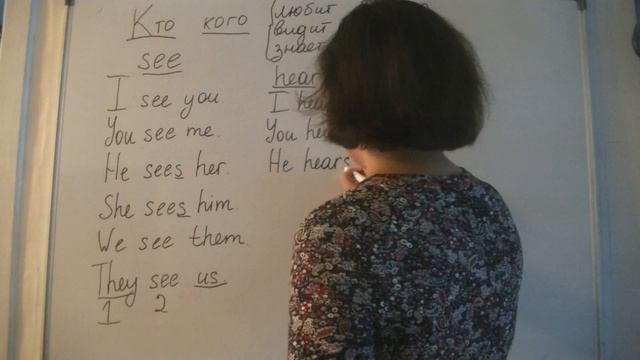 Кто кого
любит
видит
знает
see
I see you
You see me.
He sees her.
She sees him.
We see them.
They see us.
1 2
hear
I
You
He hears